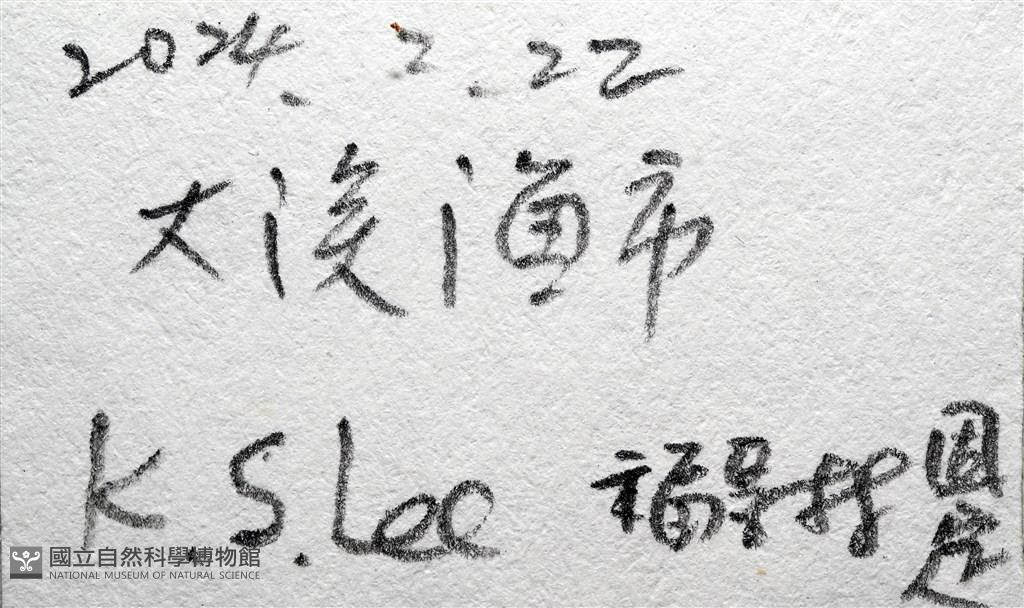 2024.2.22
大溪漁市
K.S.Lee 福尔材 固定
國立自然科學博物館
NATIONAL MUSEUM OF NATURAL SCIENCE